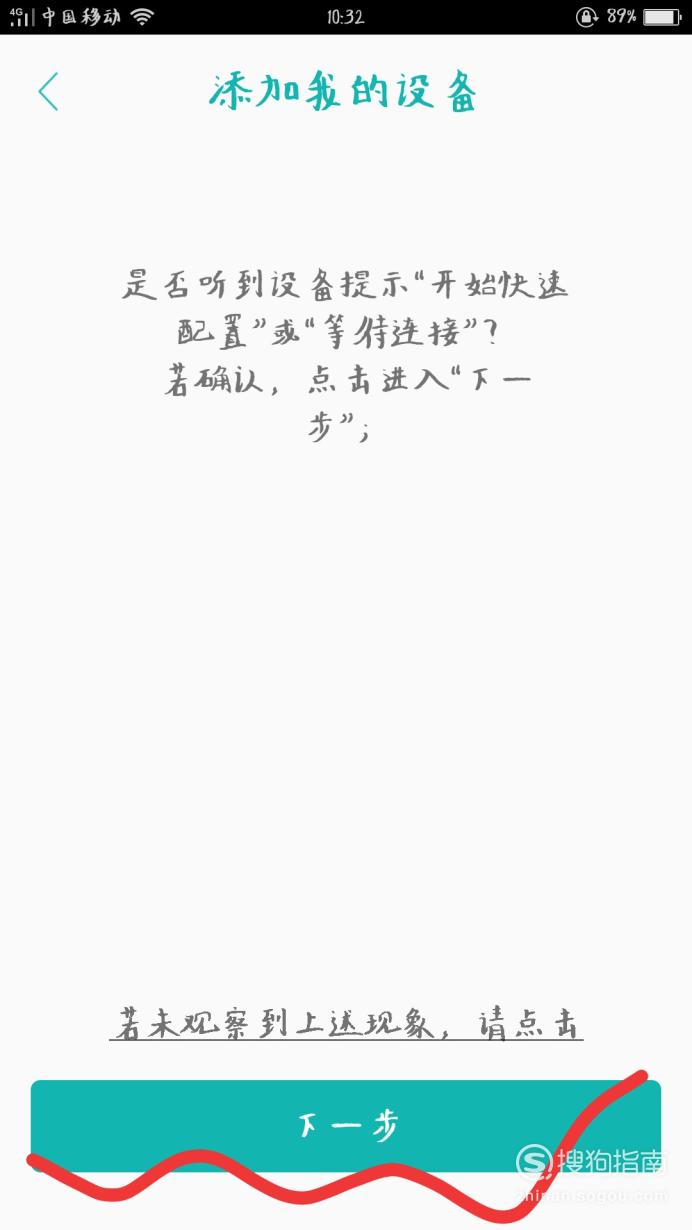 4G 中国移动 10:32 89%
添加我的设备
是否听到设备提示“开始快速
配置”或“等待连接”?
若确认，点击进入“下一
步”；
若未观察到上述现象，请点击
下一步
搜狗指南
zhinan.sogou.com